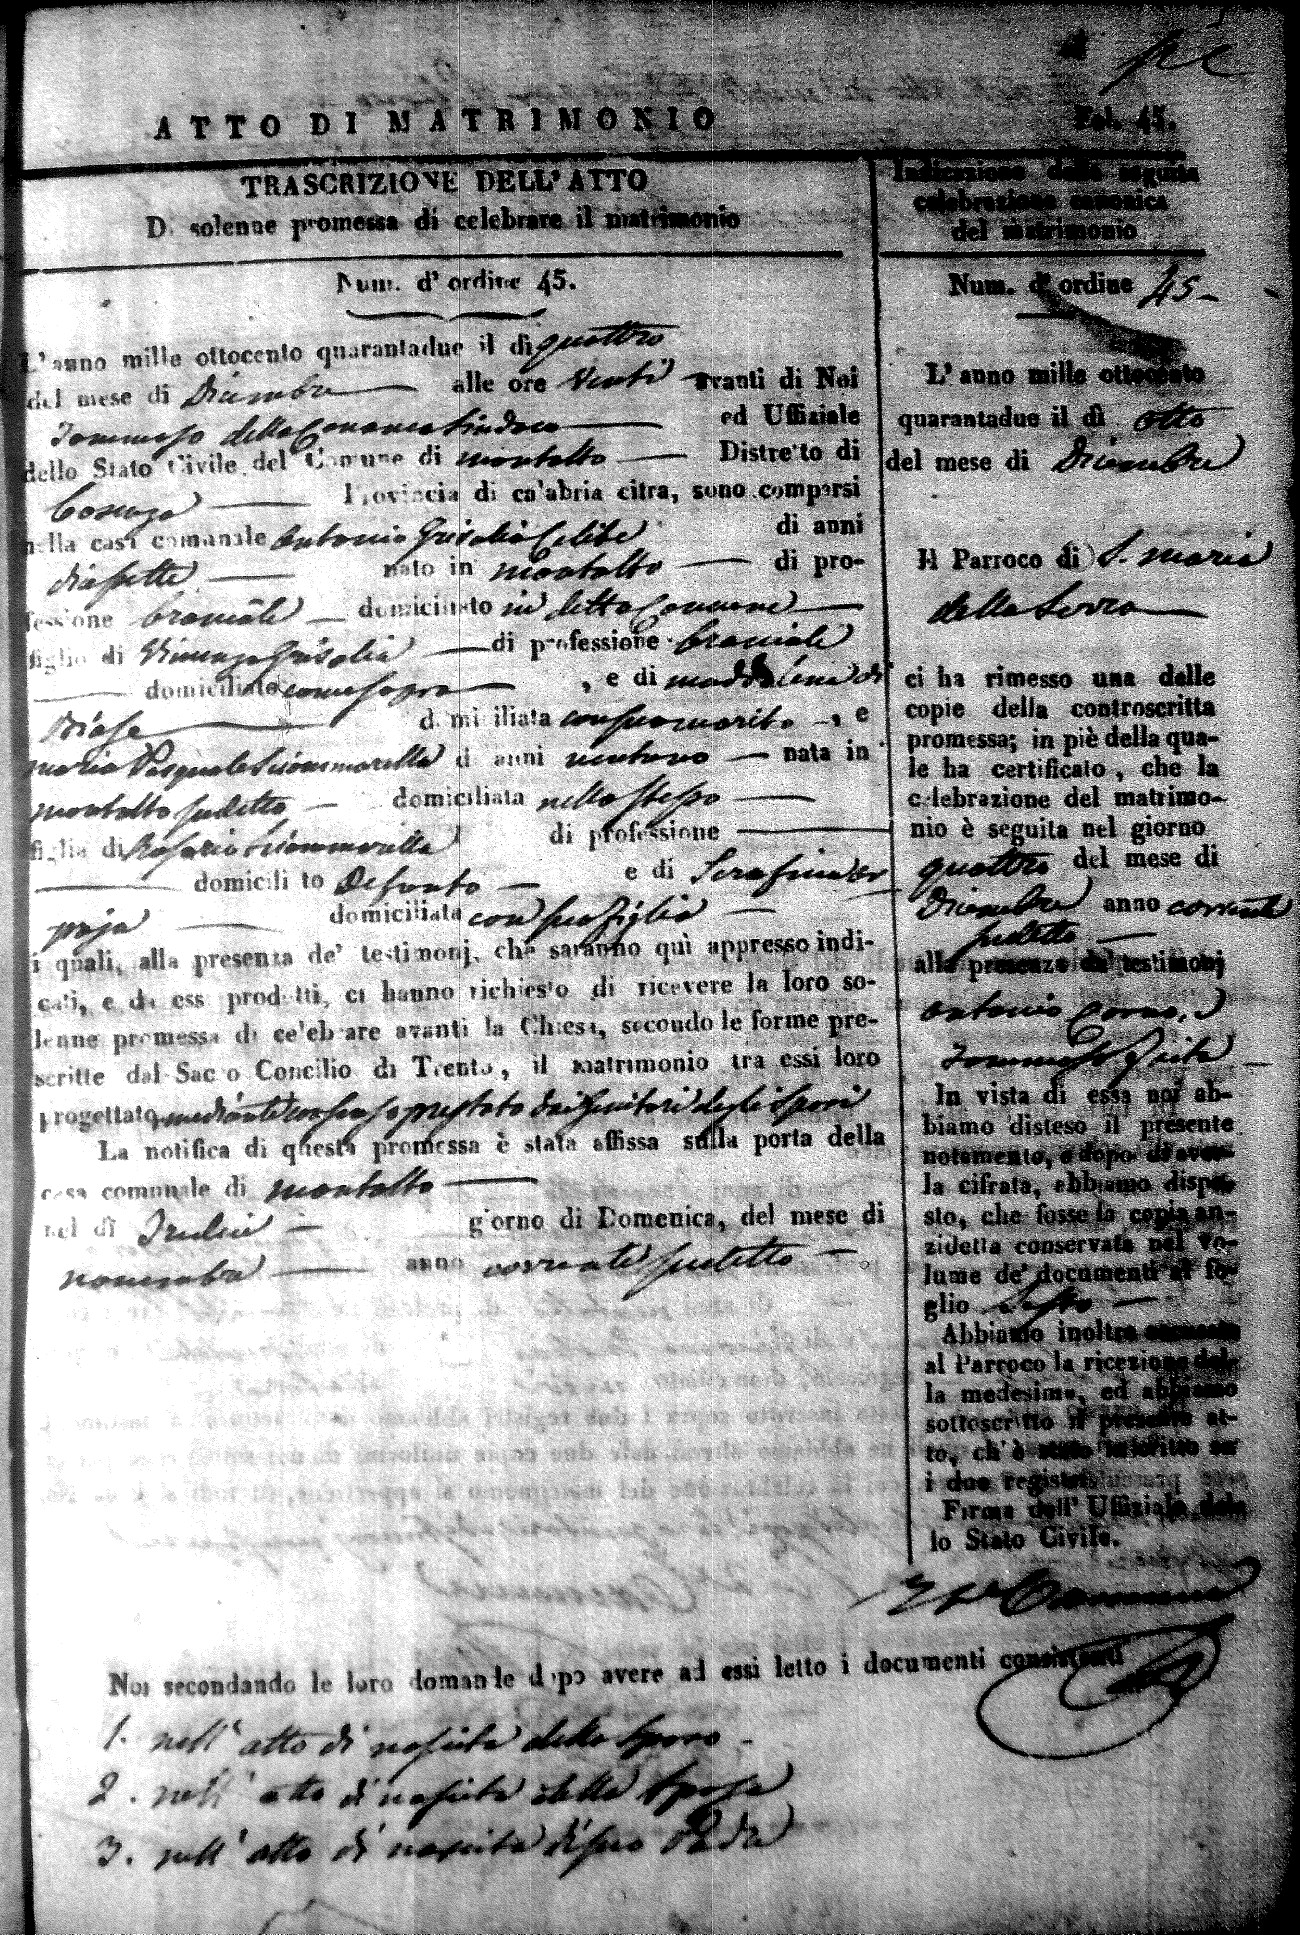 ATTO DI MATRIMONIO
Fol. 45.
TRASCRIZIONE DELL'ATTO
Di solenne promessa di celebrare il matrimonio
Num. d'ordine 45.
L'anno mille ottocento quarantadue il dì quattro
del mese di Dicembre alle ore venti avanti di Noi
Tommaso della Cananea Sindaco ed Uffiziale
dello Stato Civile del Comune di montalto Distretto di
Cosenza Provincia di calabria citra, sono comparsi
nella casa comunale Antonio Grisolia Celibe di anni
diasette nato in montalto di pro-
fessione bracciale domiciliato in detto Comune
figlio di Vincenzo Grisolia di professione bracciale
domiciliato come sopra , e di maddalena di
Biase domiciliata con suo marito , e
maria Pasquale Sciammarella di anni ventuno nata in
montalto sudetto domiciliata nello stesso
figlia di Rosario Sciammarella di professione
domiciliato Defonto e di Serafina
domiciliata con sua figlia
i quali, alla presenza de' testimonj, che saranno quì appresso indi-
cati, e da essi prodotti, ci hanno richiesto di ricevere la loro so-
lenne promessa di celebrare avanti la Chiesa, secondo le forme pre-
scritte dal Sacro Concilio di Trento, il matrimonio tra essi loro
progettato, mediante consenso prestato dai Genitori degli Sposi
La notifica di questa promessa è stata affissa sulla porta della
casa comunale di montalto
nel dì giorno di Domenica, del mese di
novembre anno corrente sudetto
Indicazione della seguita
celebrazione canonica
del matrimonio
Num. d'ordine 45
L'anno mille ottocento
quarantadue il dì otto
del mese di Dicembre
Il Parroco di S. maria
della Serra
ci ha rimesso una delle
copie della controscritta
promessa; in piè della qua-
le ha certificato, che la
celebrazione del matrimo-
nio è seguita nel giorno
quattro del mese di
Dicembre anno corrente
sudetto
alla presenza de' testimonj
Antonio
Tommaso
In vista di essa noi ab-
biamo disteso il presente
notamento, e dopo di aver-
la cifrata, abbiamo dispo-
sto, che fosse la copia an-
zidetta conservata nel vo-
lume de' documenti al fo-
glio
Abbiamo inoltre accusato
al Parroco la ricezione del-
la medesima, ed abbiamo
sottoscritto il presente at-
to, ch'è stato inscritto su
i due registri
Firma dell' Uffiziale del-
lo Stato Civile.
Noi secondando le loro domande dopo avere ad essi letto i documenti consistenti
1. nell' atto di nascita dello Sposo
2. nell' atto di nascita della Sposa
3. nell' atto di nascita di suo Padre